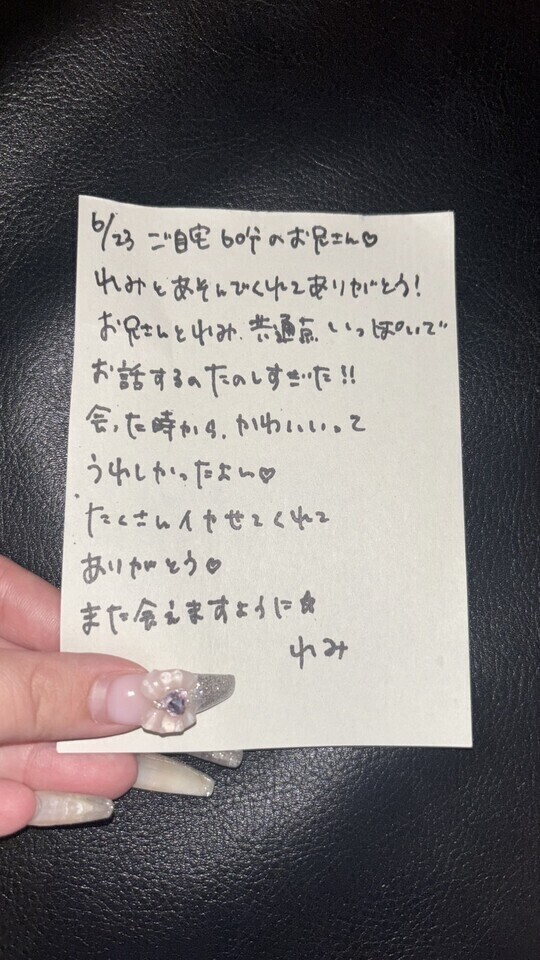 6/23 ご自宅60分のお兄さん♡
れみとあそんでくれてありがとう!
お兄さんとれみ、共通点いっぱいで
お話するのたのしすぎた!!
会った時から、かわいいって
うれしかったよん♡
たくさんイカせてくれて
ありがとう♡
また会えますように☆
れみ